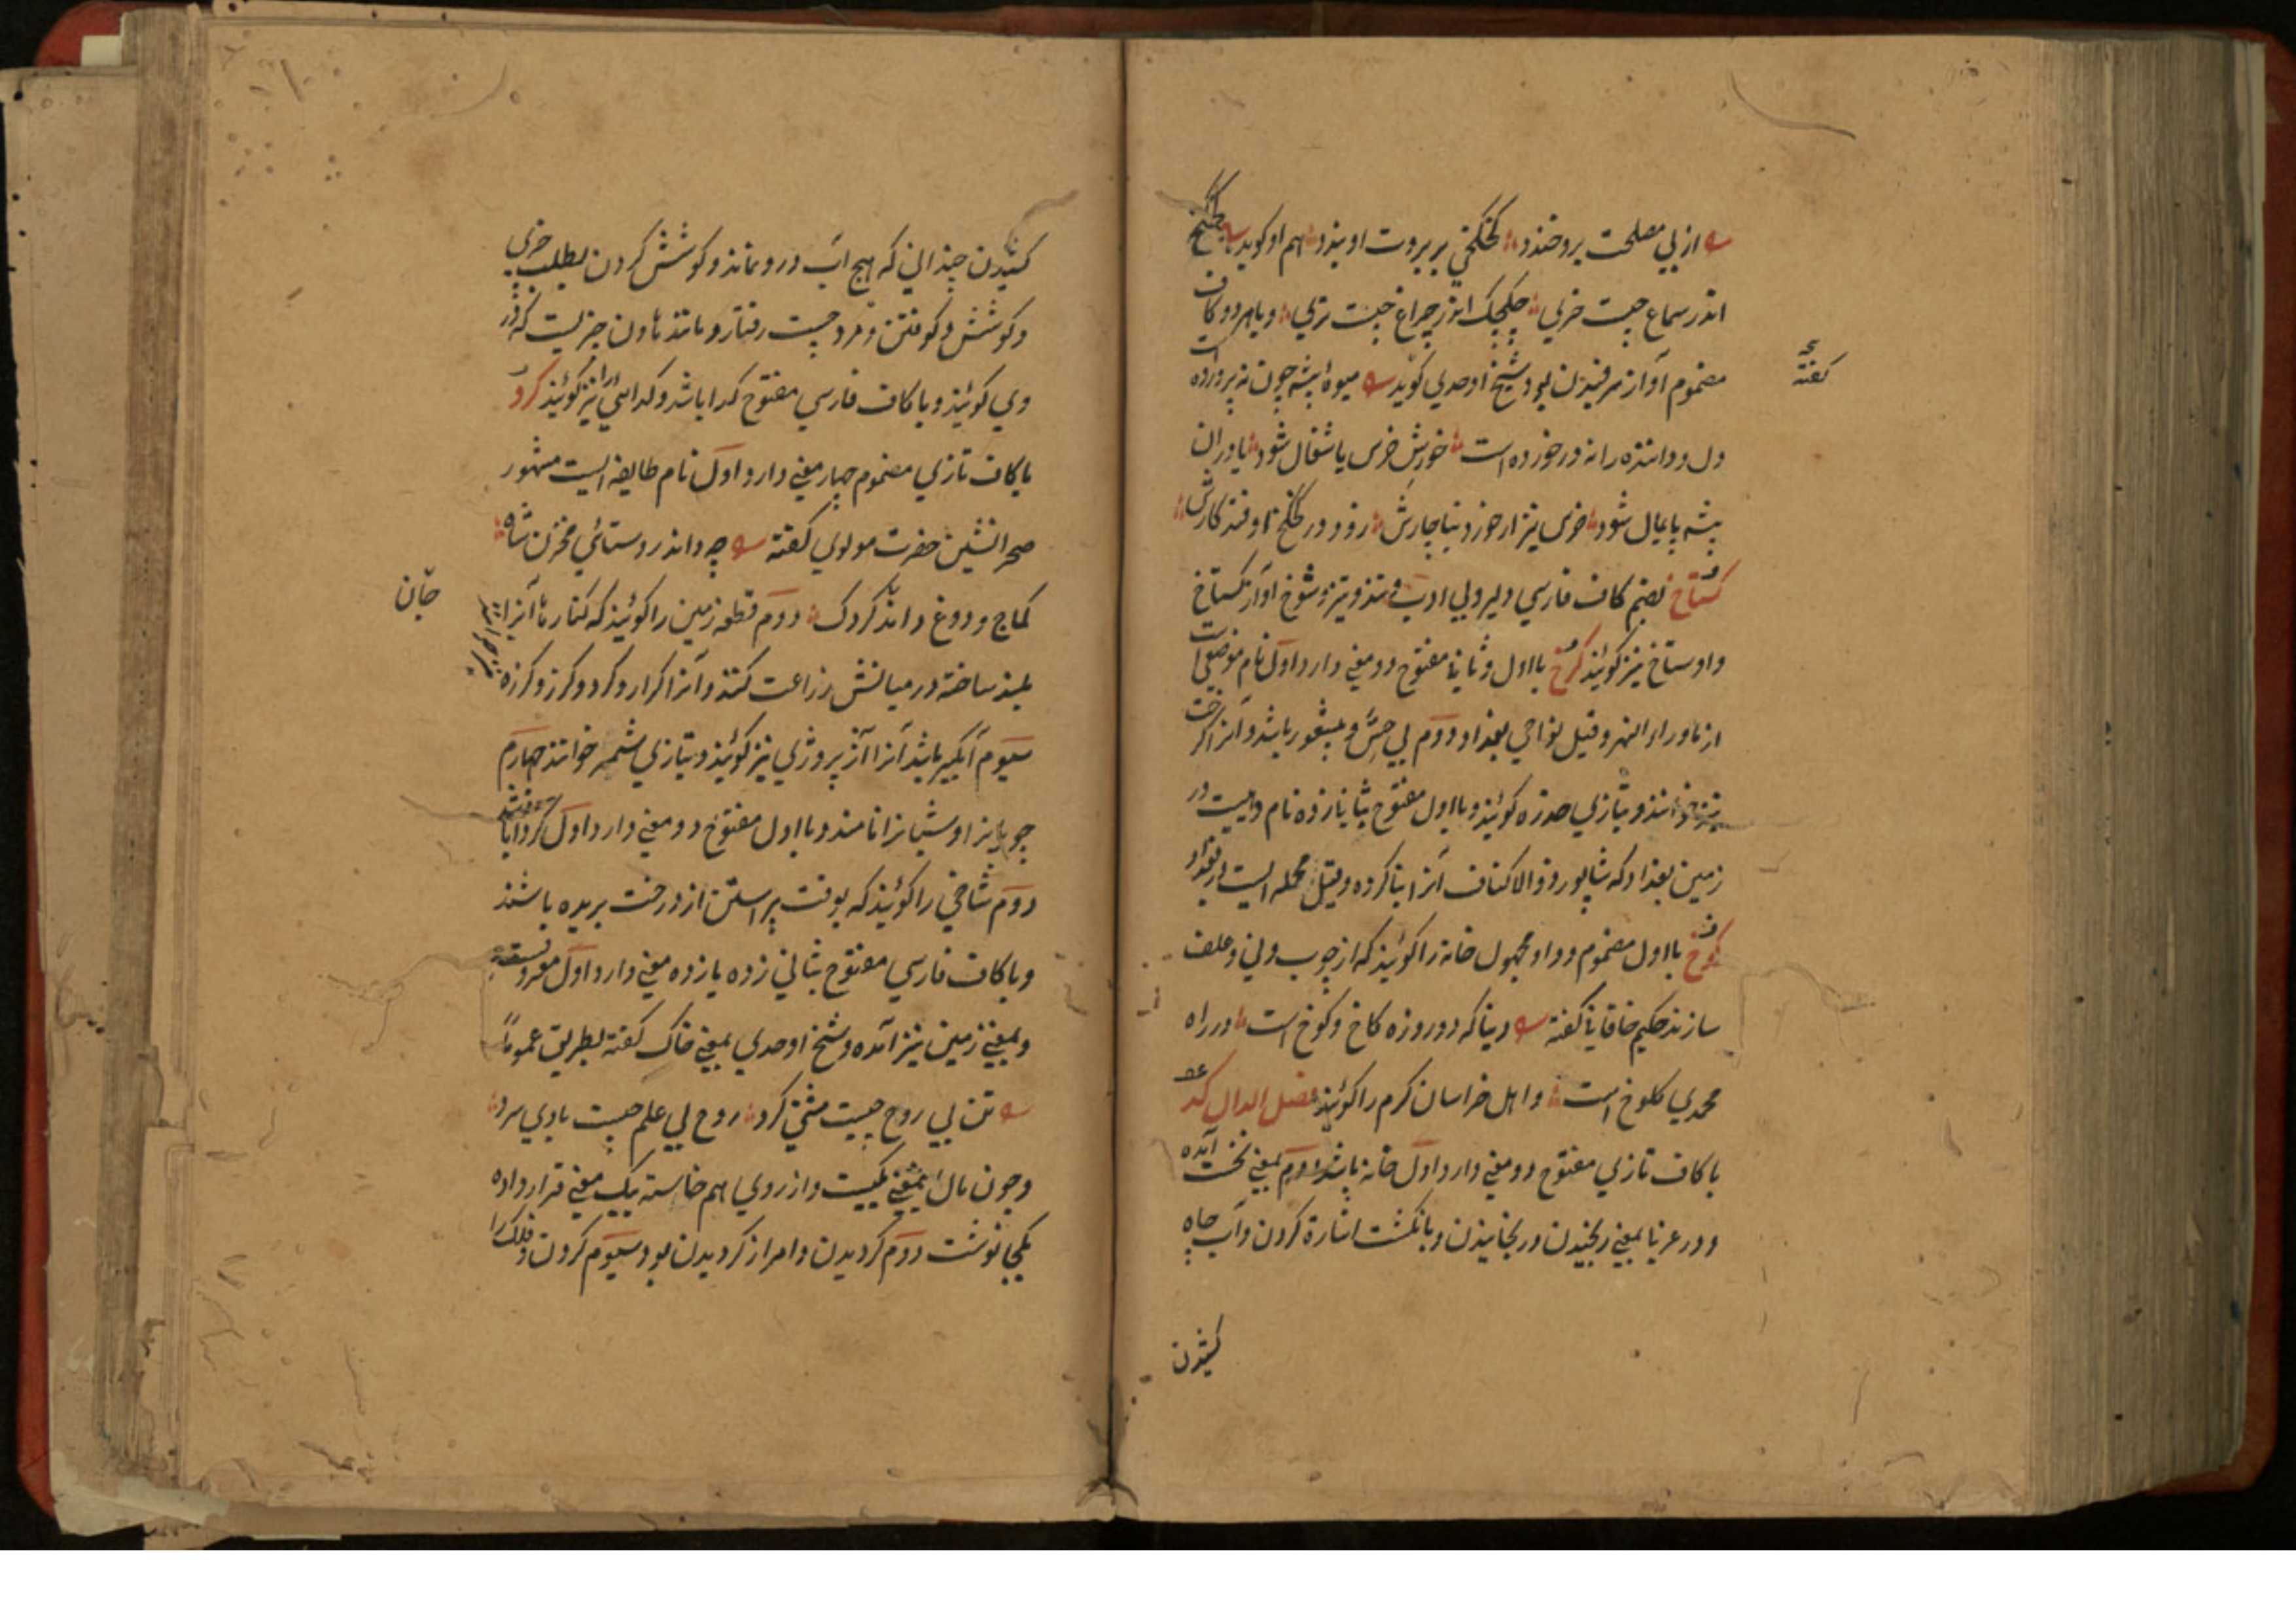 از پي مصلحت برو خندد کخکخي بر بروت او بندد هم او کويد
اندر سماع چيست خري چکچک اندر چراغ چيست تري و با هر دو کاف
مضموم آواز سرفيدن بود شيخ اوحدي کويد ميوه بيشه چون نه پرورده است
دل و داننده را نه در خورده است خورش خرس يا شغال شود يا در ان
بيشه پايمال شود خرس نيز ار خورد بناچارش زود در کخکخ اوفتد کارش
کستاخ بضم کاف فارسي دلير و بي ادب و تند و تيز و شوخ و آنرا کستاخ
و اوستاخ نيز کويند کرخ با اول و ثاني مفتوح دو معني دارد اول نام موضعي است
از ماوراء النهر و قيل نواحي بغداد و دوم بي حس و بيشعور باشد و آنرا کرخت
نيز خوانند و بتازي خدره کويند و با اول مفتوح بثاني زده نام دهيست در
زمين بغداد که شاپور ذو الاکتاف آنرا بنا کرده و قيل محله ايست در بغداد
کوخ با اول مضموم و واو مجهول خانه را کويند که از چوب و ني و علف
سازند حکيم خاقاني کفته دنيا که دو روزه کاخ و کوخ است در راه
محمدي کلوخ است و اهل خراسان کرم را کويند فصل الدال کد
با کاف تازي مفتوح دو معني دارد اول خانه باشد دوم بمعني نخست آمده
و در عربي بمعني رنجيدن و رنجانيدن و بانکشت اشارة کردن و آب چاه
کشيدن
کفته
کشيدن چنداني که هيچ آب درو نماند و کوشش کردن بطلب چيزي
و کوشش و کوفتن و مرد چست رفتار و مانند هاون چيزيست که در
وي کويند و با کاف فارسي مفتوح کدا باشد و کدائي را نيز کويند کرد
با کاف تازي مضموم چهار معني دارد اول نام طايفه ايست مشهور
صحرانشين حضرت مولوي کفته چه داند روستائي مخزن شاه
کماج و دوغ داند کردک دوم قطعه زمين را کويند که کنارهاي آنرا
بلند ساخته در ميانش زراعت کنند و آنرا کرار و کرد و کرز و کرزه
سيوم آبکير باشد آنرا آژير و ژي نيز کويند و بتازي شمر خوانند چهارم
چوپانرا و شبانرا نامند و با اول مفتوح دو معني دارد اول کردار باشد
دوم شاخي را کويند که بوقت پيراستن از درخت بريده باشند
و با کاف فارسي مفتوح بثاني زده يازده معني دارد اول معروفست
و بمعني زمين نيز آمده و شيخ اوحدي بمعني خاک کفته بطريق عموم
تن بي روح چيست مشتي کرد روح بي علم چيست بادي سرد
و چون مآل بمعني يکيست و از روي هم خاسته يک معني قرار داده
يکجا نوشت دوم کرديدن و امر از کرديدن بود و سيوم کردون و فلک را
جان